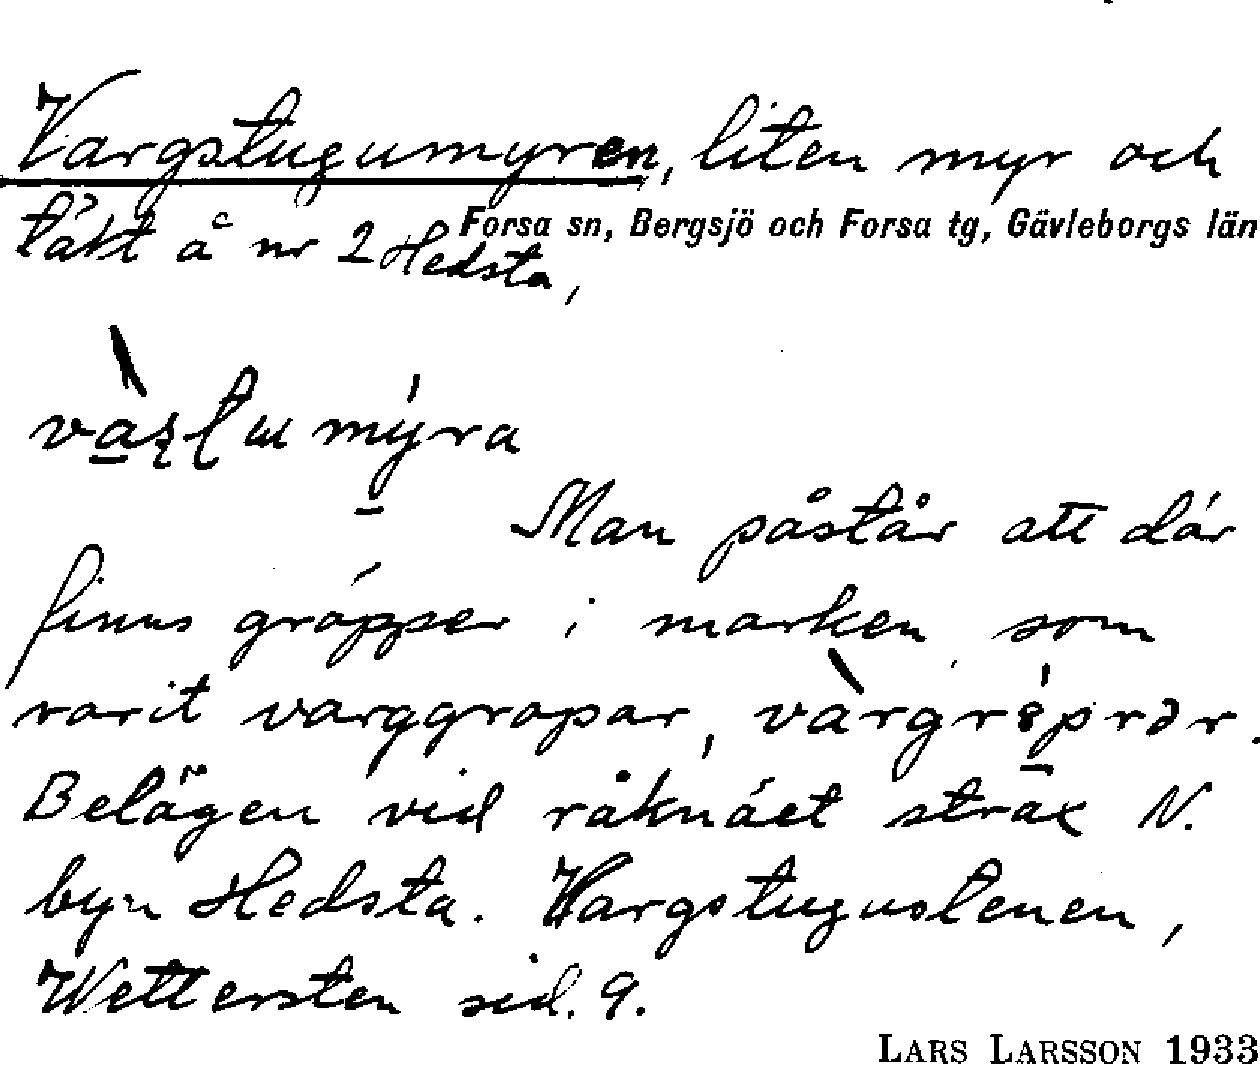 Vargstugumyren, liten myr och
Forsa sn, Bergsjö och Forsa tg, Gävleborgs län
täkt å nr 2 Hedsta,
Man påstår att där
finns gräpper i marken som
varit varggropar,
Belägen vid råknäet sträx N.
byn Hedsta. Vargstugustenen,
Wettersten sid. 9.
LARS LARSSON 1933